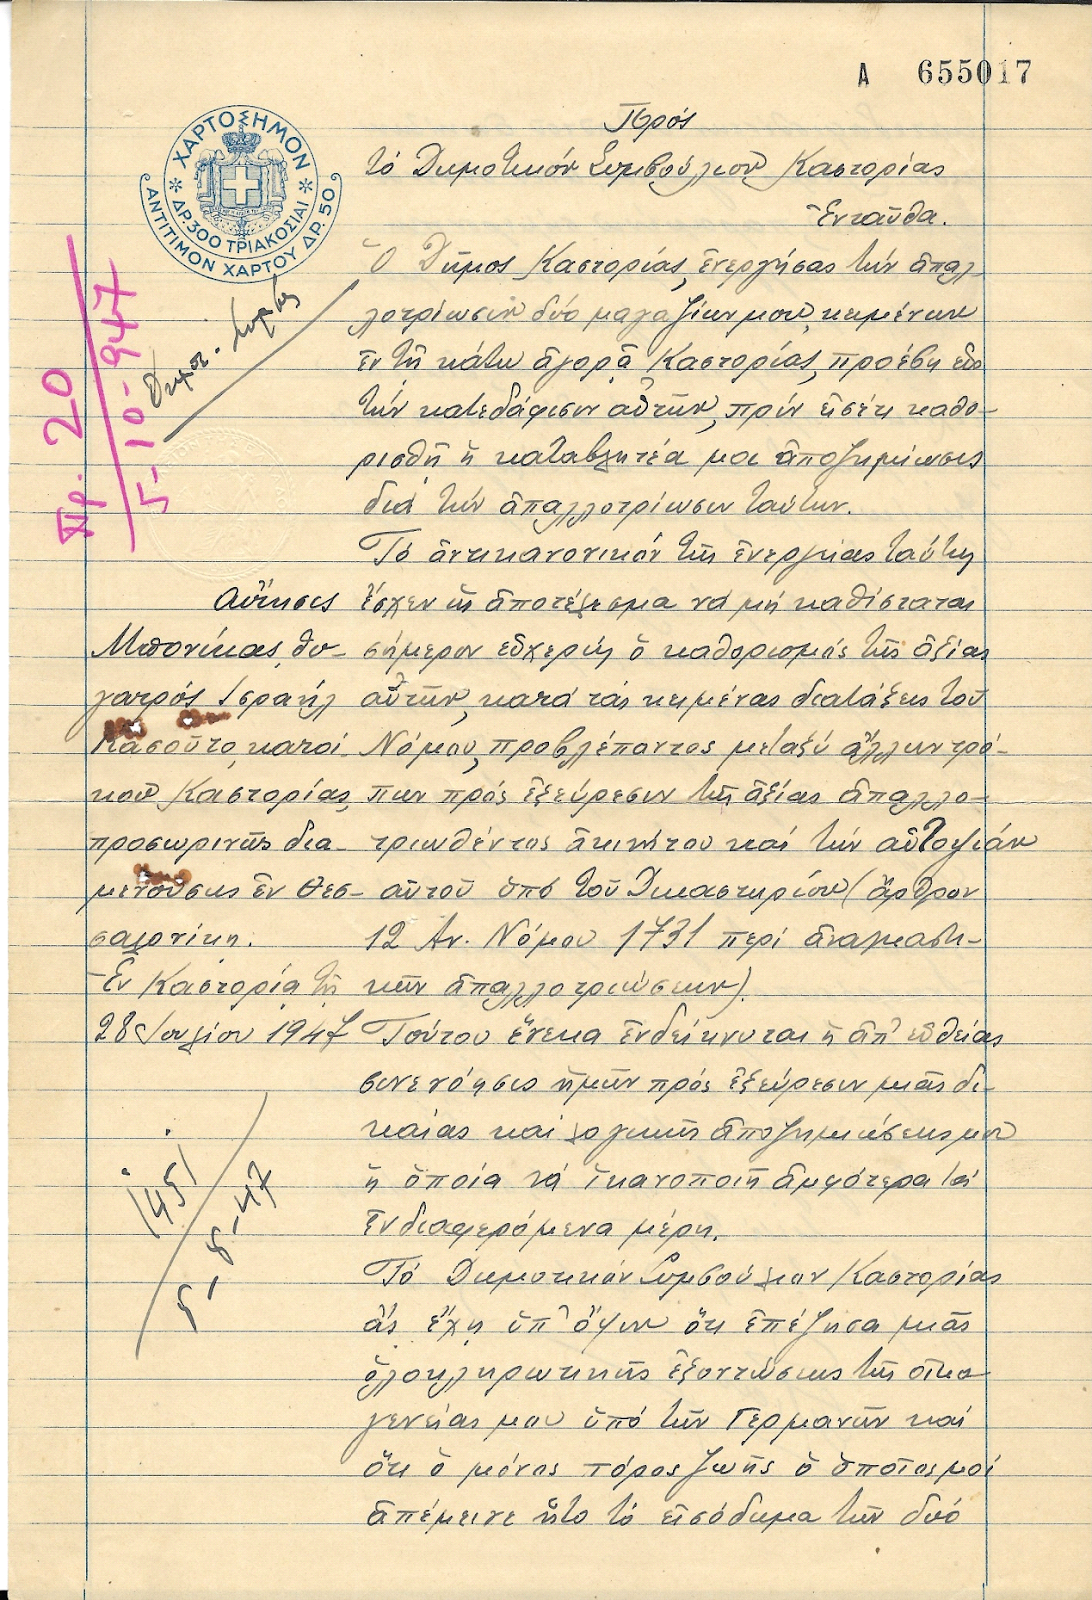 Α 655017
ΧΑΡΤΟΣΗΜΟΝ
ΔΡ. 300 ΤΡΙΑΚΟΣΙΑΙ
ΑΝΤΙΤΙΜΟΝ ΧΑΡΤΟΥ ΔΡ. 50
Πρ. 20
5-10-947
Δημοτ. Συμβ.
Πρός
τό Δημοτικόν Συμβούλιον Καστορίας
Ἐνταῦθα.
Ὁ Δῆμος Καστορίας, ἐνεργήσας τήν ἀπαλ
λοτρίωσιν δύο μαγαζίων μου, κειμένων
ἐν τῇ κάτω ἀγορᾷ Καστορίας, προέβη εἰς
τήν κατεδάφισιν αὐτῶν, πρίν εἰσέτι καθο-
ρισθῇ ἡ καταβλητέα μοι ἀποζημίωσις
διά τήν ἀπαλλοτρίωσιν ταύτην.
Τό ἀντικανονικόν τῆς ἐνεργείας ταύτης
ἔσχεν ὡς ἀποτέλεσμα νά μή καθίσταται
σήμερον εὐχερής ὁ καθορισμός τῆς ἀξίας
αὐτῶν, κατά τάς κειμένας διατάξεις τοῦ
Νόμου, προβλέποντος μεταξύ ἄλλων τρό-
πων πρός ἐξεύρεσιν τῆς ἀξίας ἀπαλλο-
τριωθέντος ἀκινήτου καί τήν αὐτοψίαν
αὐτοῦ ὑπό τοῦ Δικαστηρίου (ἄρθρον
12 Αν. Νόμου 1731 περί ἀναγκαστι-
κῶν ἀπαλλοτριώσεων).
Τούτου ἕνεκα ἐνδείκνυται ἡ ἀπ' εὐθείας
συνενόησις ἡμῶν πρός ἐξεύρεσιν μιᾶς δι-
καίας καί λογικῆς ἀποζημιώσεως μου
ἡ ὁποία νά ἱκανοποιῇ ἀμφότερα τά
ἐνδιαφερόμενα μέρη.
Τό Δημοτικόν Συμβούλιον Καστορίας
ἄς ἔχῃ ὑπ' ὄψιν ὅτι ἐπέζησα μιᾶς
ὁλοκληρωτικῆς ἐξοντώσεως τῆς οἰκο
γενείας μου ὑπό τῶν Γερμανῶν καί
ὅτι ὁ μόνος πόρος ζωῆς ὁ ὁποῖος μοί
ἀπέμεινε ἦτο τό εἰσόδημα τῶν δύο
Αἴτησις
Μπονίκας, θυ-
γατρός Ισραήλ
Κασοῦτο, κατοί
κου Καστορίας,
προσωρινῶς δια-
μενούσης ἐν Θεσ-
σαλονίκῃ.
Ἐν Καστορίᾳ τῇ
28 Ἰουλίου 1947
1451
5-8-47